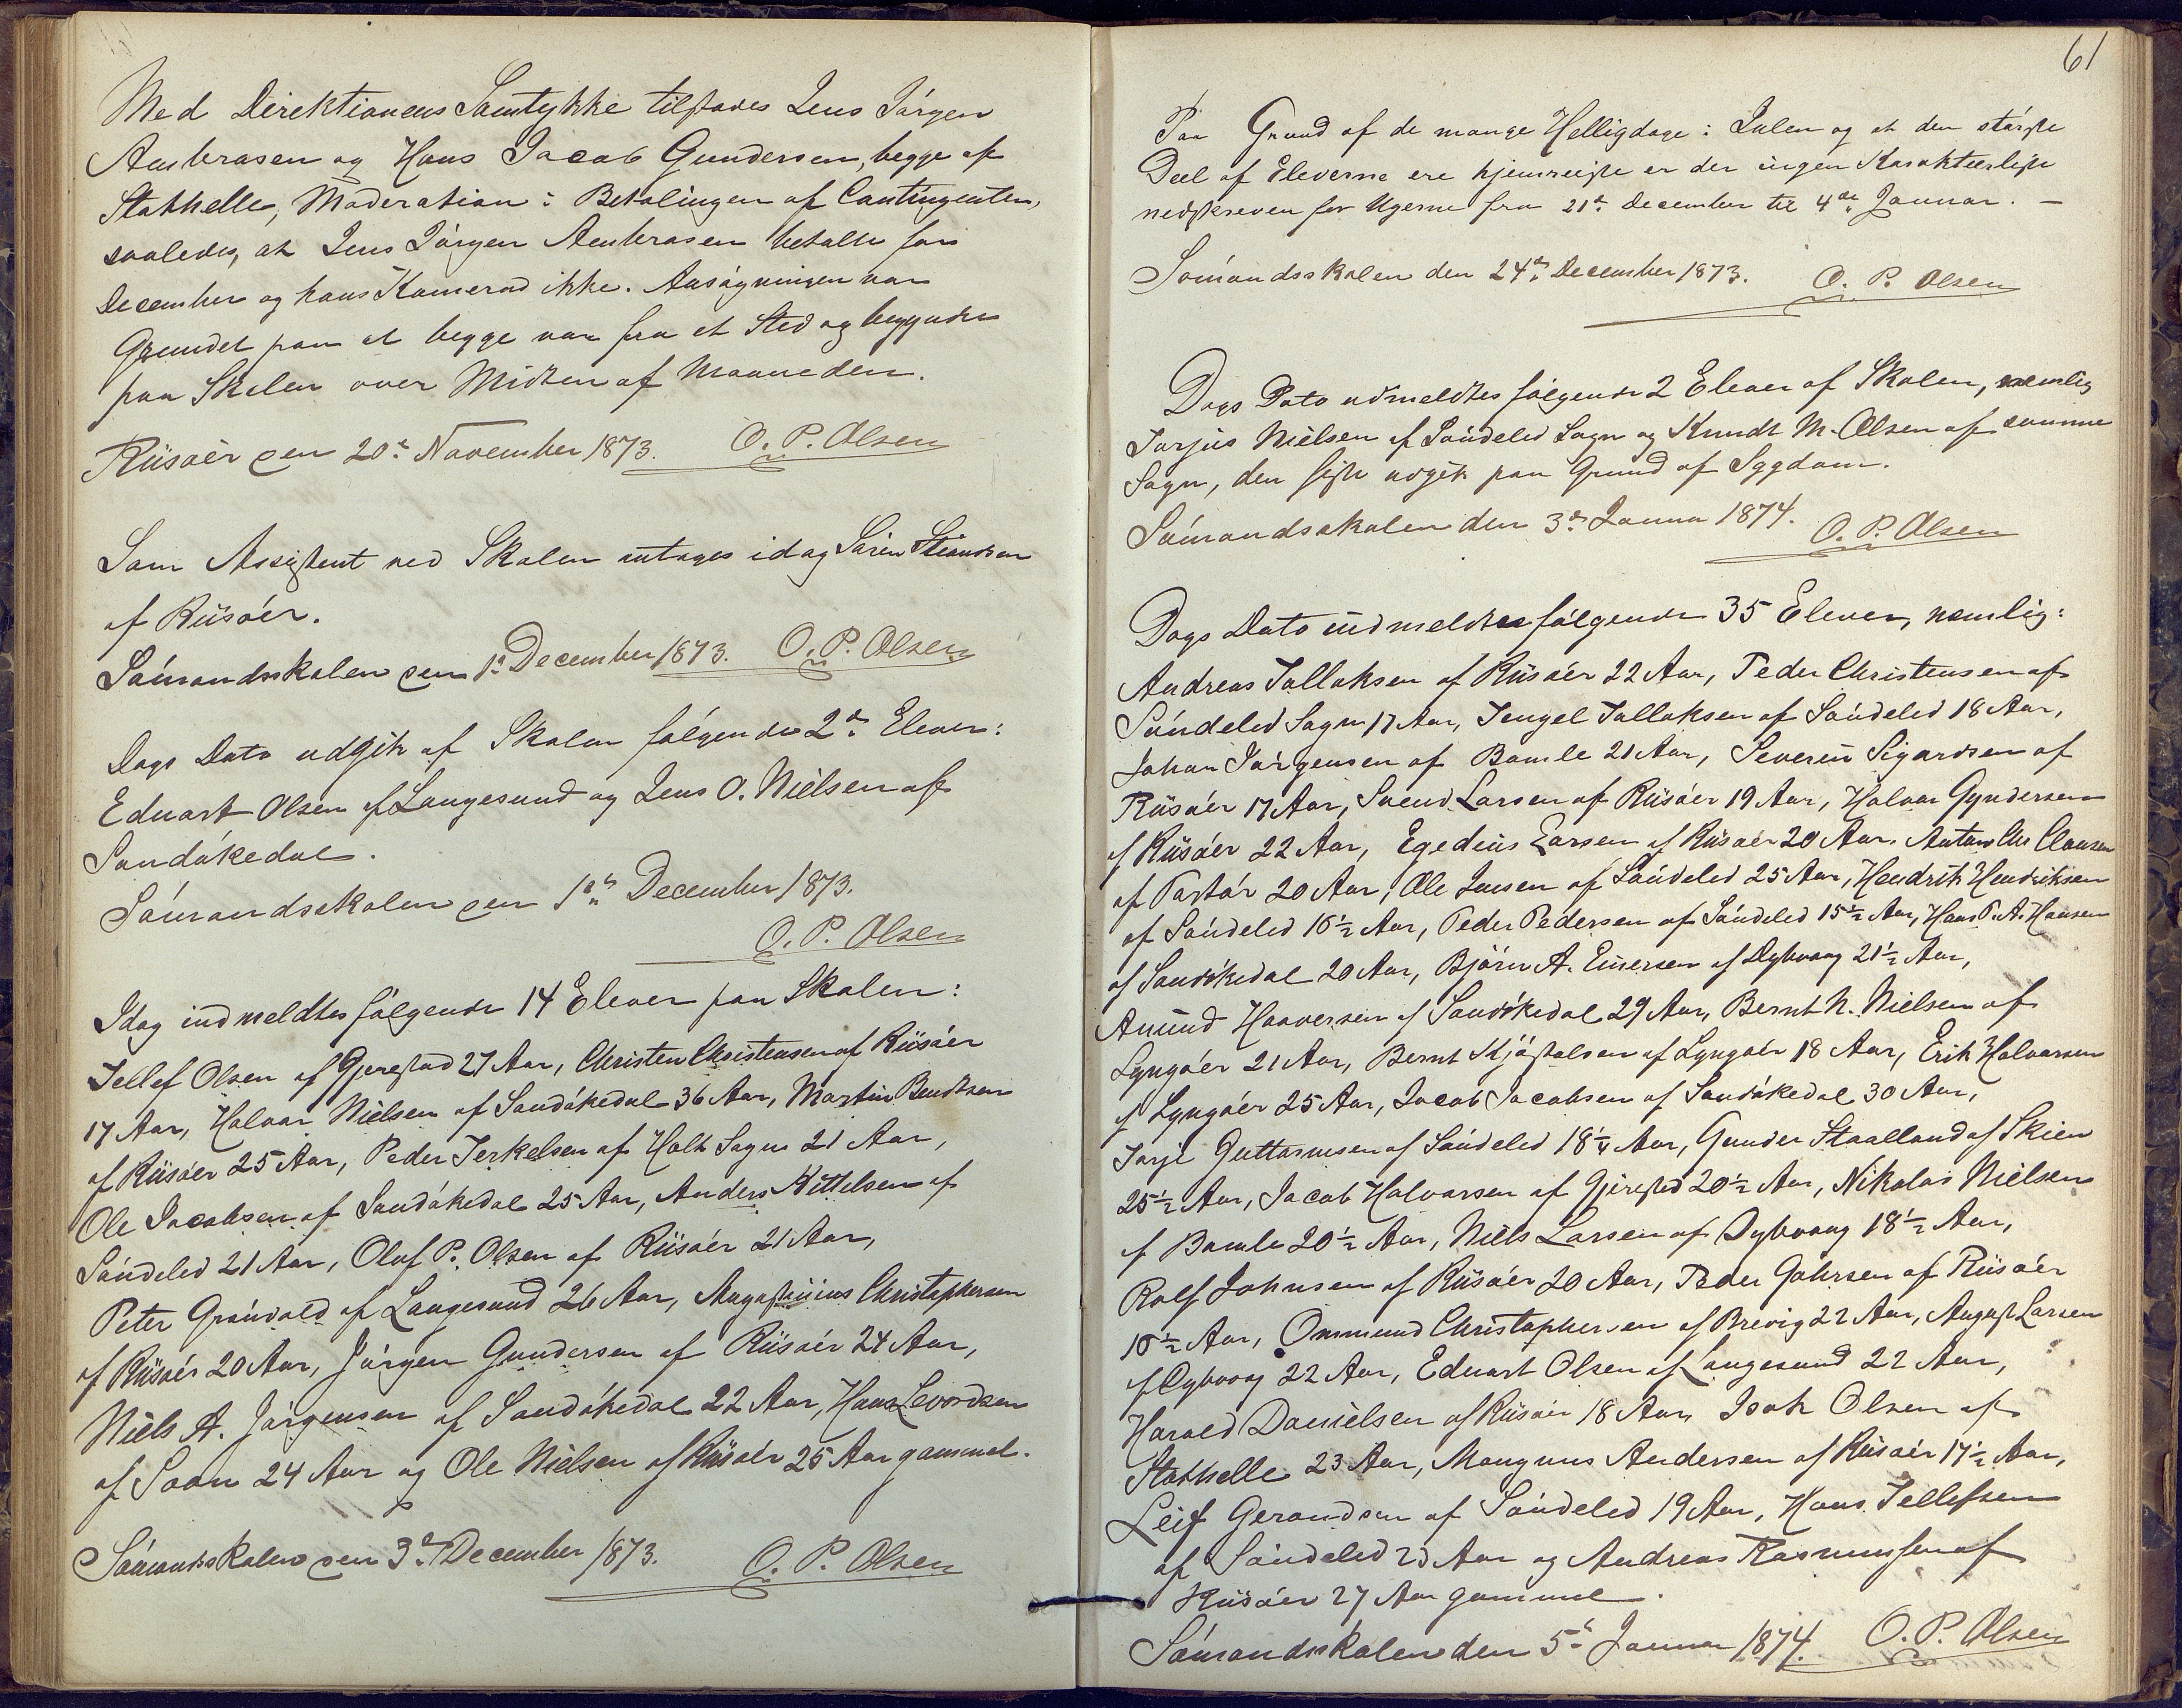 Med Direktionens Samtykke tilstodes Jens Jörgen
Ambrosen og Hans Jacob Gundersen, begge af
Stathelle, Moderation i Betalingen af Contingenten,
saaledes, at Jens Jörgen Ambrosen betalte for
December og hans Kamerad ikke. Ansögningen var
Grundet paa at begge var fra et Sted og begyndte
paa Skolen over Midten af Maaneden.
Riisöer den 20de November 1873. O. P. Olsen
Som Assistent ved Skolen antoges idag Sören
af Riisöer.
Sömandsskolen den 1ste December 1873. O. P. Olsen
Dags Dato udgik af Skolen fölgende 2de Elever:
Eduart Olsen af Langesund og Jens O. Nielsen af
Sandökedal.
Sömandsskolen den 1ste December 1873.
O. P. Olsen
Idag indmeldtes fölgende 14 Elever paa Skolen:
Tellef Olsen af Gjerestad 27 Aar, Christen Christensen af Riisöer
17 Aar, Halvor Nielsen af Sandökedal 36 Aar, Martin Bendtsen
af Riisöer 25 Aar, Peder Terkelsen af Holt Sogn 21 Aar,
Ole Jacobsen af Sandökedal 25 Aar, Anders Kittelsen af
Söndeled 21 Aar, Oluf P. Olsen af Riisöer 21 Aar,
Peter Grönvold af Langesund 26 Aar, Augustinius Christophersen
af Riisöer 20 Aar, Jörgen Gundersen af Riisöer 24 Aar,
Niels A. Jörgensen af Sandökedal 22 Aar, Hans Levordsen
af Soon 24 Aar og Ole Nielsen af Riisöer 25 Aar gammel.
Sömandsskolen den 3de December 1873. O. P. Olsen
61
Paa Grund af de mange Helligdage i Julen og at den störste
Deel af Eleverne ere hjemreiste er der ingen Karakteerliste
nedskreven for Ugerne fra 21de December til 4de Januar. –
Sömandsskolen den 24de December 1873. O. P. Olsen
Dags Dato udmeldtes fölgende 2 Elever af Skolen, nemlig
Torjus Nielsen af Söndeled Sogn og Knudt M. Olsen af samme
Sogn, den sidste udgik paa Grund af Sygdom.
Sömandsskolen den 3de Januar 1874. O. P. Olsen
Dags Dato indmeldtes fölgende 35 Elever, nemlig:
Andreas Tallaksen af Riisöer 22 Aar, Peder Christensen af
Söndeled Sogn 17 Aar, Tengel Tallaksen af Söndeled 18 Aar,
Johan Jörgensen af Bamle 21 Aar, Severin Sigardsen af
Riisöer 17 Aar, Svend Larsen af Riisöer 19 Aar, Halvor Gyndersen
af Riisöer 22 Aar, Egedius Larsen af Riisöer 20 Aar, Anton Chr Clausen
af 20 Aar, Ole Jensen af Söndeled 25 Aar, Hendrik Hendriksen
af Söndeled 16½ Aar, Peder Pedersen af Söndeled 15½ Aar, Hans P. A. Hansen
af Sandökedal 20 Aar, Björn A. Einersen af Dybvaag 21½ Aar,
Amund Haaversen af Sandökedal 29 Aar, Bernt N. Nielsen af
Lyngöer 21 Aar, Bernt Kjöstolsen af Lyngöer 18 Aar, Erik Halvorsen
af Lyngöer 25 Aar, Jacob Jacobsen af Sandökedal 30 Aar,
Tarje Guttormsen af Söndeled 18¼ Aar, Gunder Staalland af Skien
25½ Aar, Jacob Halvorsen af Gjerested 20½ Aar, Nikolai Nielsen
af Bamle 20½ Aar, Niels Larsen af Dybvaag 18½ Aar,
Rolf Johnsen af Riisöer 20 Aar, Peder Gahrsen af Riisöer
16½ Aar, Ommund Christophersen af Brevig 22 Aar, August Larsen
af Dybvaag 22 Aar, Eduart Olsen af Langesund 22 Aar,
Harald Danielsen af Riisöer 18 Aar, Isak Olsen af
Stathelle 23 Aar, Mangnus Andersen af Riisöer 17½ Aar,
Leif Gerandsen af Söndeled 19 Aar, Hans Tellefsen
af Söndeled 23 Aar og Andreas Rasmussen af
Riisöer 27 Aar gammel.
Sömandsskolen den 5te Januar 1874. O. P. Olsen